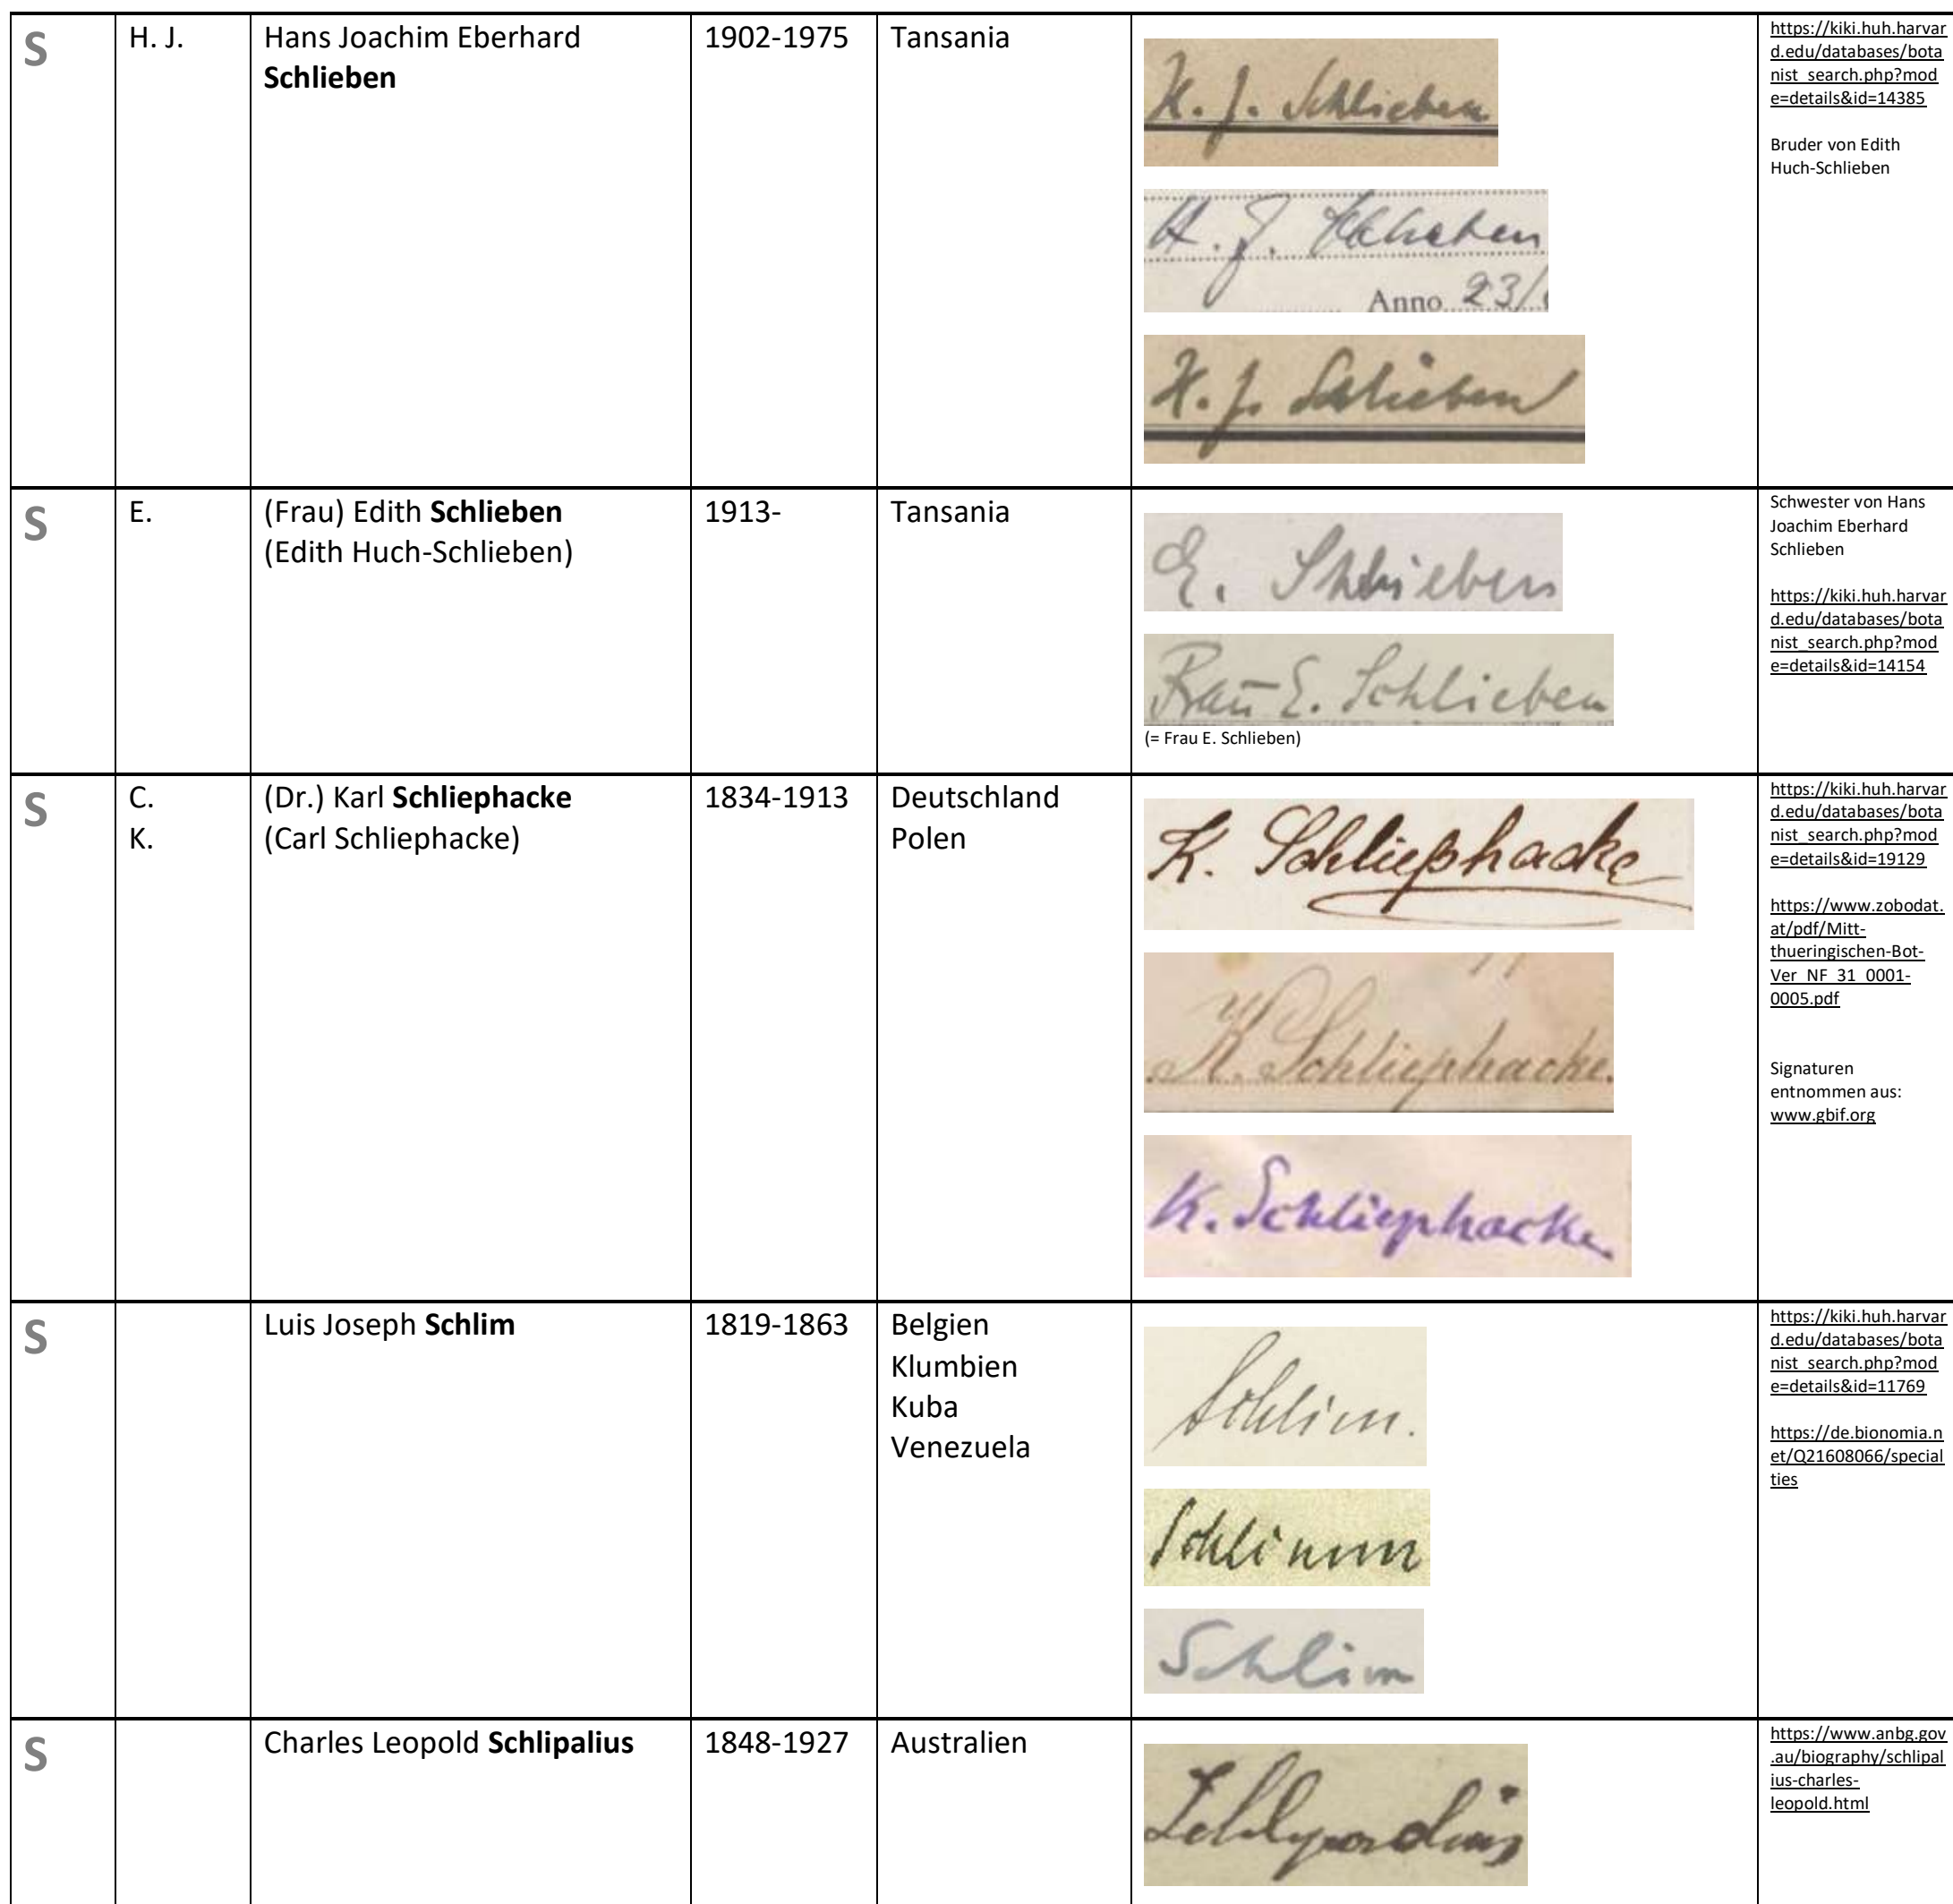 S
H. J.
Hans Joachim Eberhard
Schlieben
1902-1975
Tansania
H. J. Schlieben
H. J. Schlieben
Anno 23/
H. J. Schlieben
https://kiki.huh.harvar
d.edu/databases/bota
nist_search.php?mod
e=details&id=14385
Bruder von Edith
Huch-Schlieben
S
E.
(Frau) Edith Schlieben
(Edith Huch-Schlieben)
1913-
Tansania
E. Schlieben
Frau E. Schlieben
(= Frau E. Schlieben)
Schwester von Hans
Joachim Eberhard
Schlieben
https://kiki.huh.harvar
d.edu/databases/bota
nist_search.php?mod
e=details&id=14154
S
C.
K.
(Dr.) Karl Schliephacke
(Carl Schliephacke)
1834-1913
Deutschland
Polen
K. Schliephacke
K. Schliephacke.
K. Schliephacke
https://kiki.huh.harvar
d.edu/databases/bota
nist_search.php?mod
e=details&id=19129
https://www.zobodat.
at/pdf/Mitt-
thueringischen-Bot-
Ver_NF_31_0001-
0005.pdf
Signaturen
entnommen aus:
www.gbif.org
S
Luis Joseph Schlim
1819-1863
Belgien
Klumbien
Kuba
Venezuela
Schlim.
Schlimm
Schlim
https://kiki.huh.harvar
d.edu/databases/bota
nist_search.php?mod
e=details&id=11769
https://de.bionomia.n
et/Q21608066/special
ties
S
Charles Leopold Schlipalius
1848-1927
Australien
Schlipalius
https://www.anbg.gov
.au/biography/schlipal
ius-charles-
leopold.html